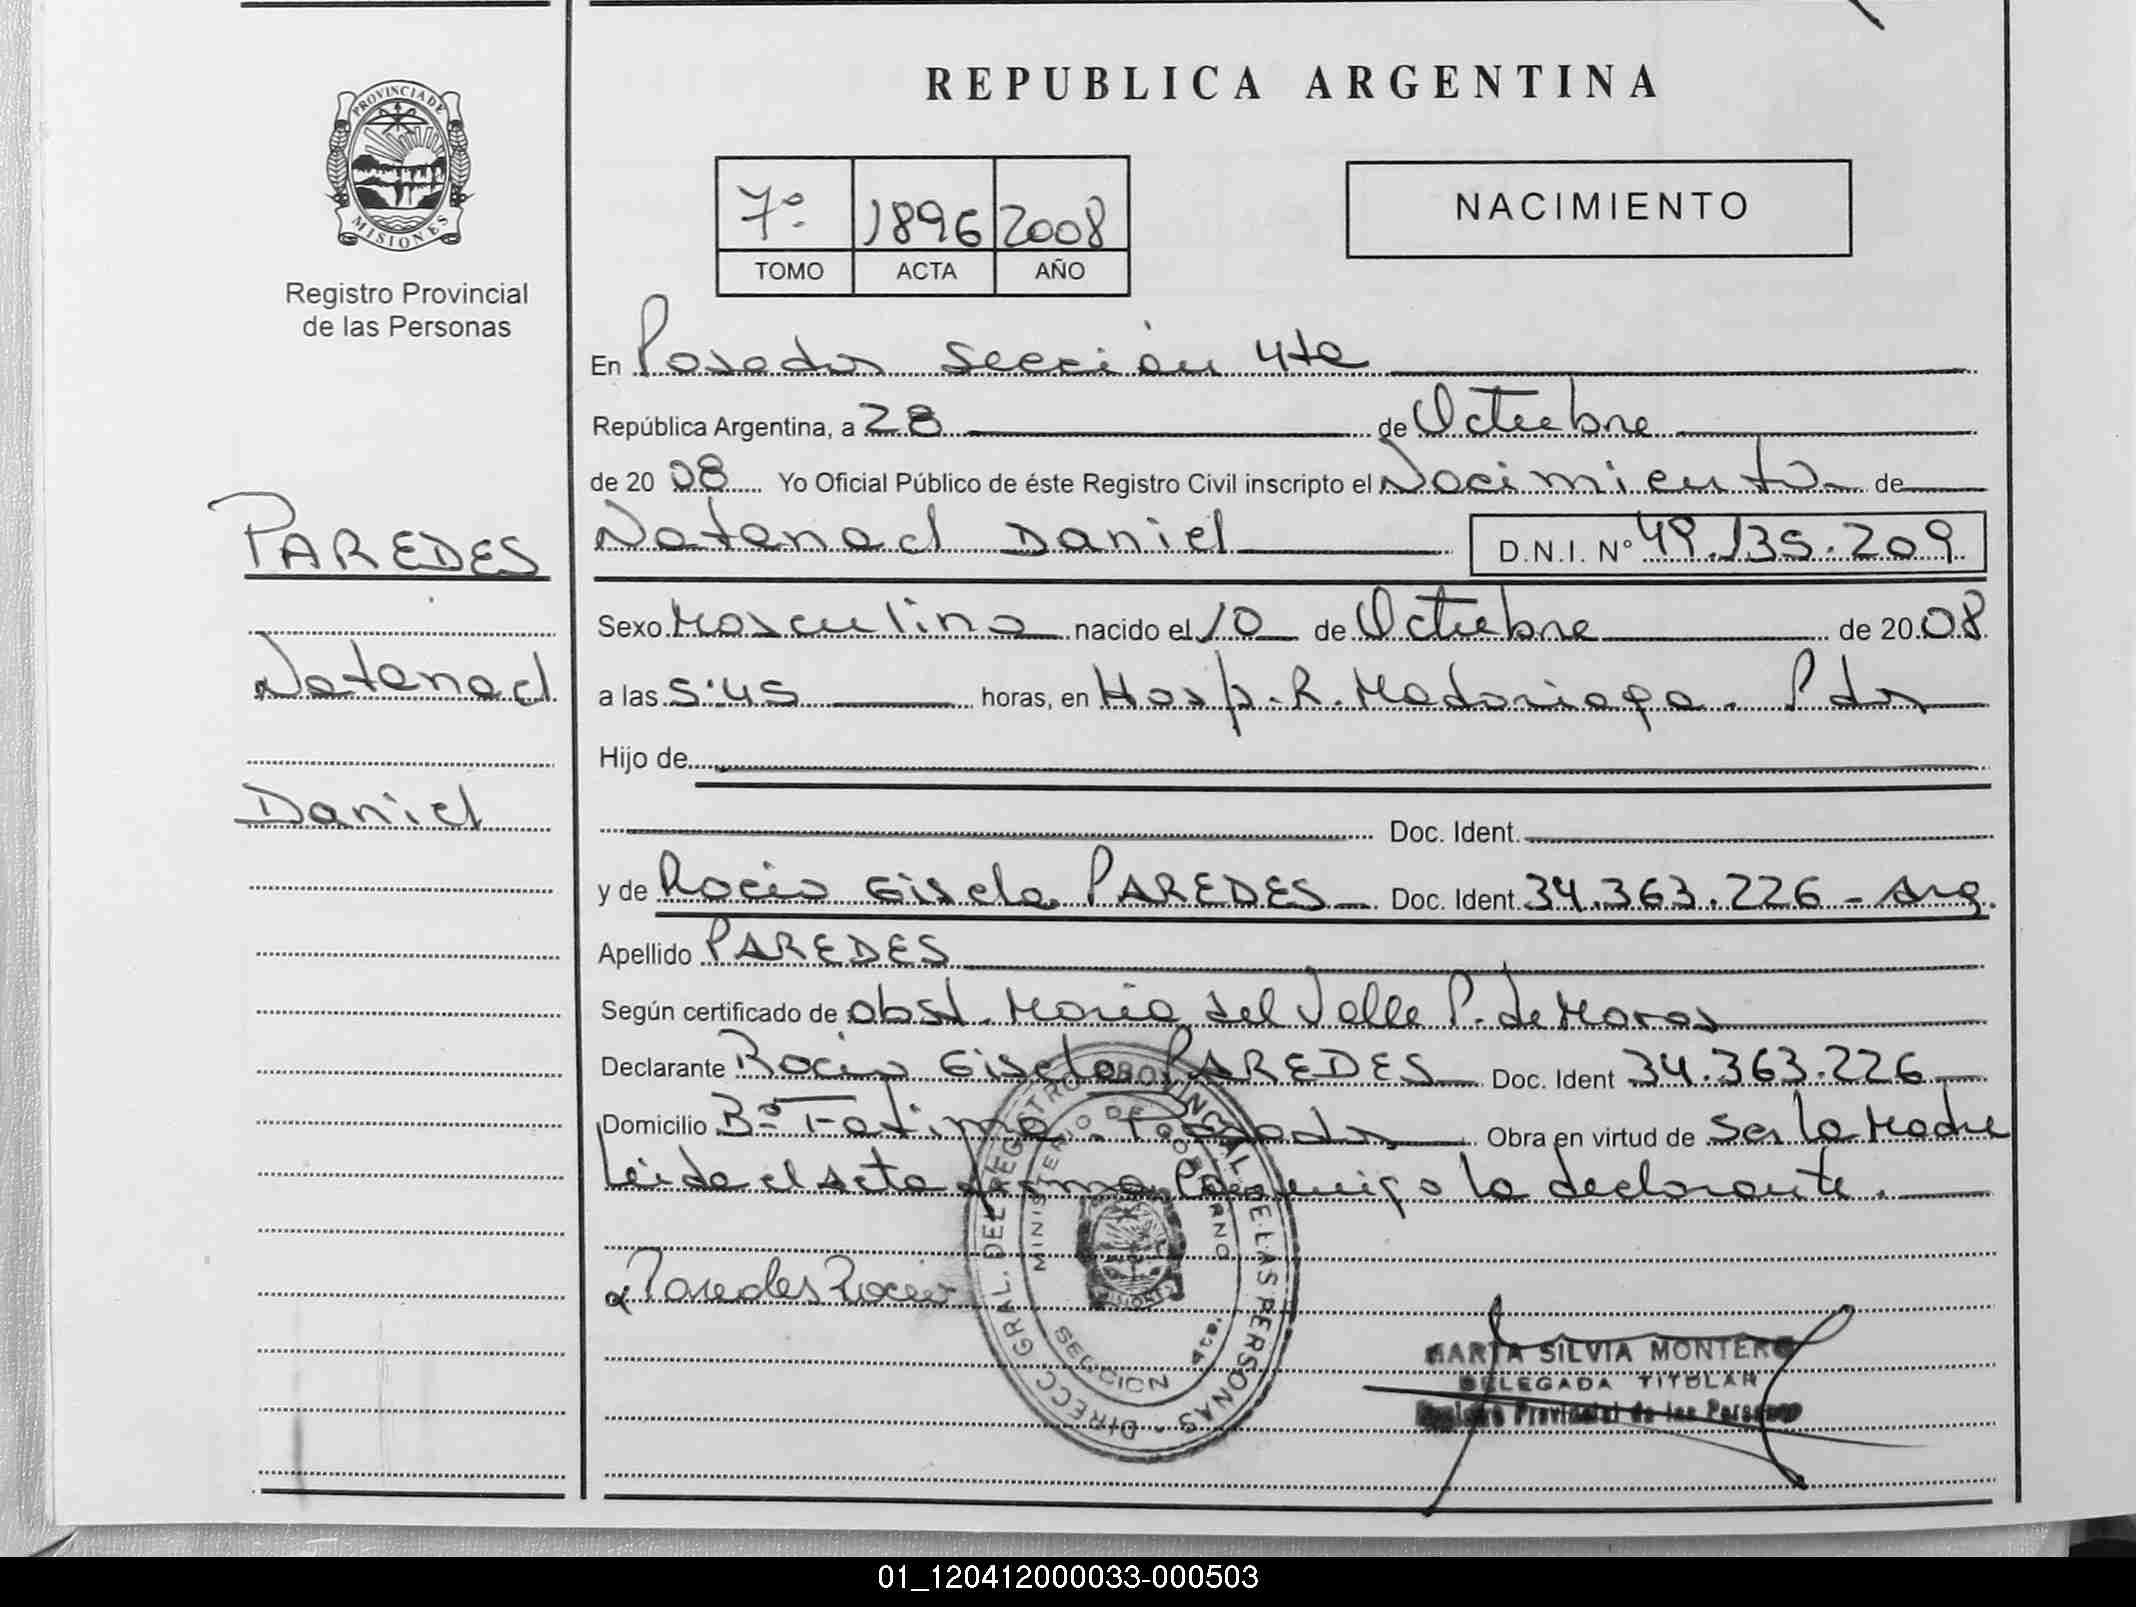 REPUBLICA ARGENTINA
PROVINCIA DE
MISIONES
Registro Provincial
de las Personas
7º 1896 2008
TOMO ACTA AÑO
NACIMIENTO
En Posadas Sección 4ta
República Argentina, a 28 de Octubre
de 20 08 Yo Oficial Público de éste Registro Civil inscripto el Nacimiento de
Natanael Daniel D.N.I. Nº 49.135.209
PAREDES
Natanael
Daniel
Sexo Masculino nacido el 10 de Octubre de 20 08
a las 5:45 horas, en Hosp. R. Madariaga. Pdas
Hijo de
Doc. Ident.
y de Rocio Gisela PAREDES Doc. Ident. 34.363.226 - Arg.
Apellido PAREDES
Según certificado de obst. Maria del Valle P. de
Declarante Rocio Gisela PAREDES Doc. Ident 34.363.226
Domicilio Bº Fatima - Posadas Obra en virtud de ser la Madre
Leida el Acta firma Conmigo la declarante.
Paredes Rocio
DIRECC. GRAL. DEL REGISTRO PROVINCIAL DE LAS PERSONAS
MINISTERIO DE GOBIERNO
SECCION 4ta.
MARTA SILVIA MONTERO
DELEGADA TITULAR
Registro Provincial de las Personas
01_120412000033-000503